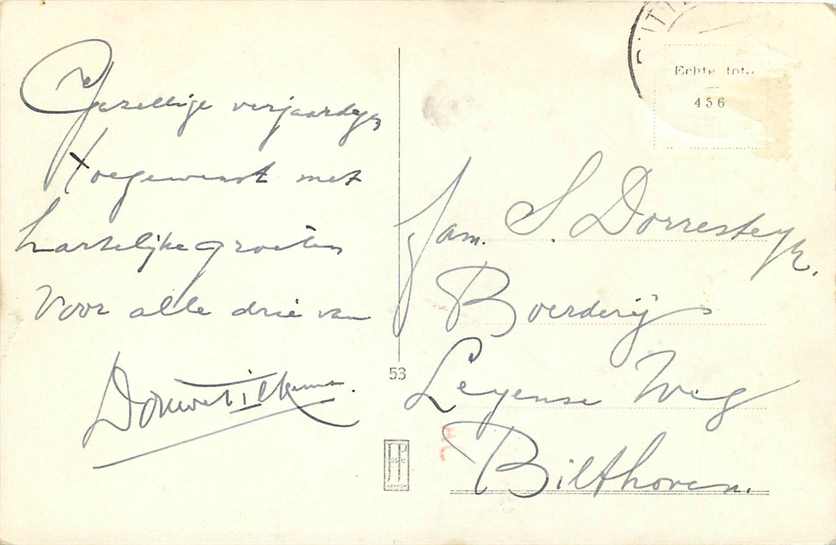 Gezellige verjaardag
toegewenst met
hartelijke groeten
voor alle drie van
Echte foto
456
Fam. S. Dorresteyn.
Boerderij
Leyense Weg
Bilthoven.
53